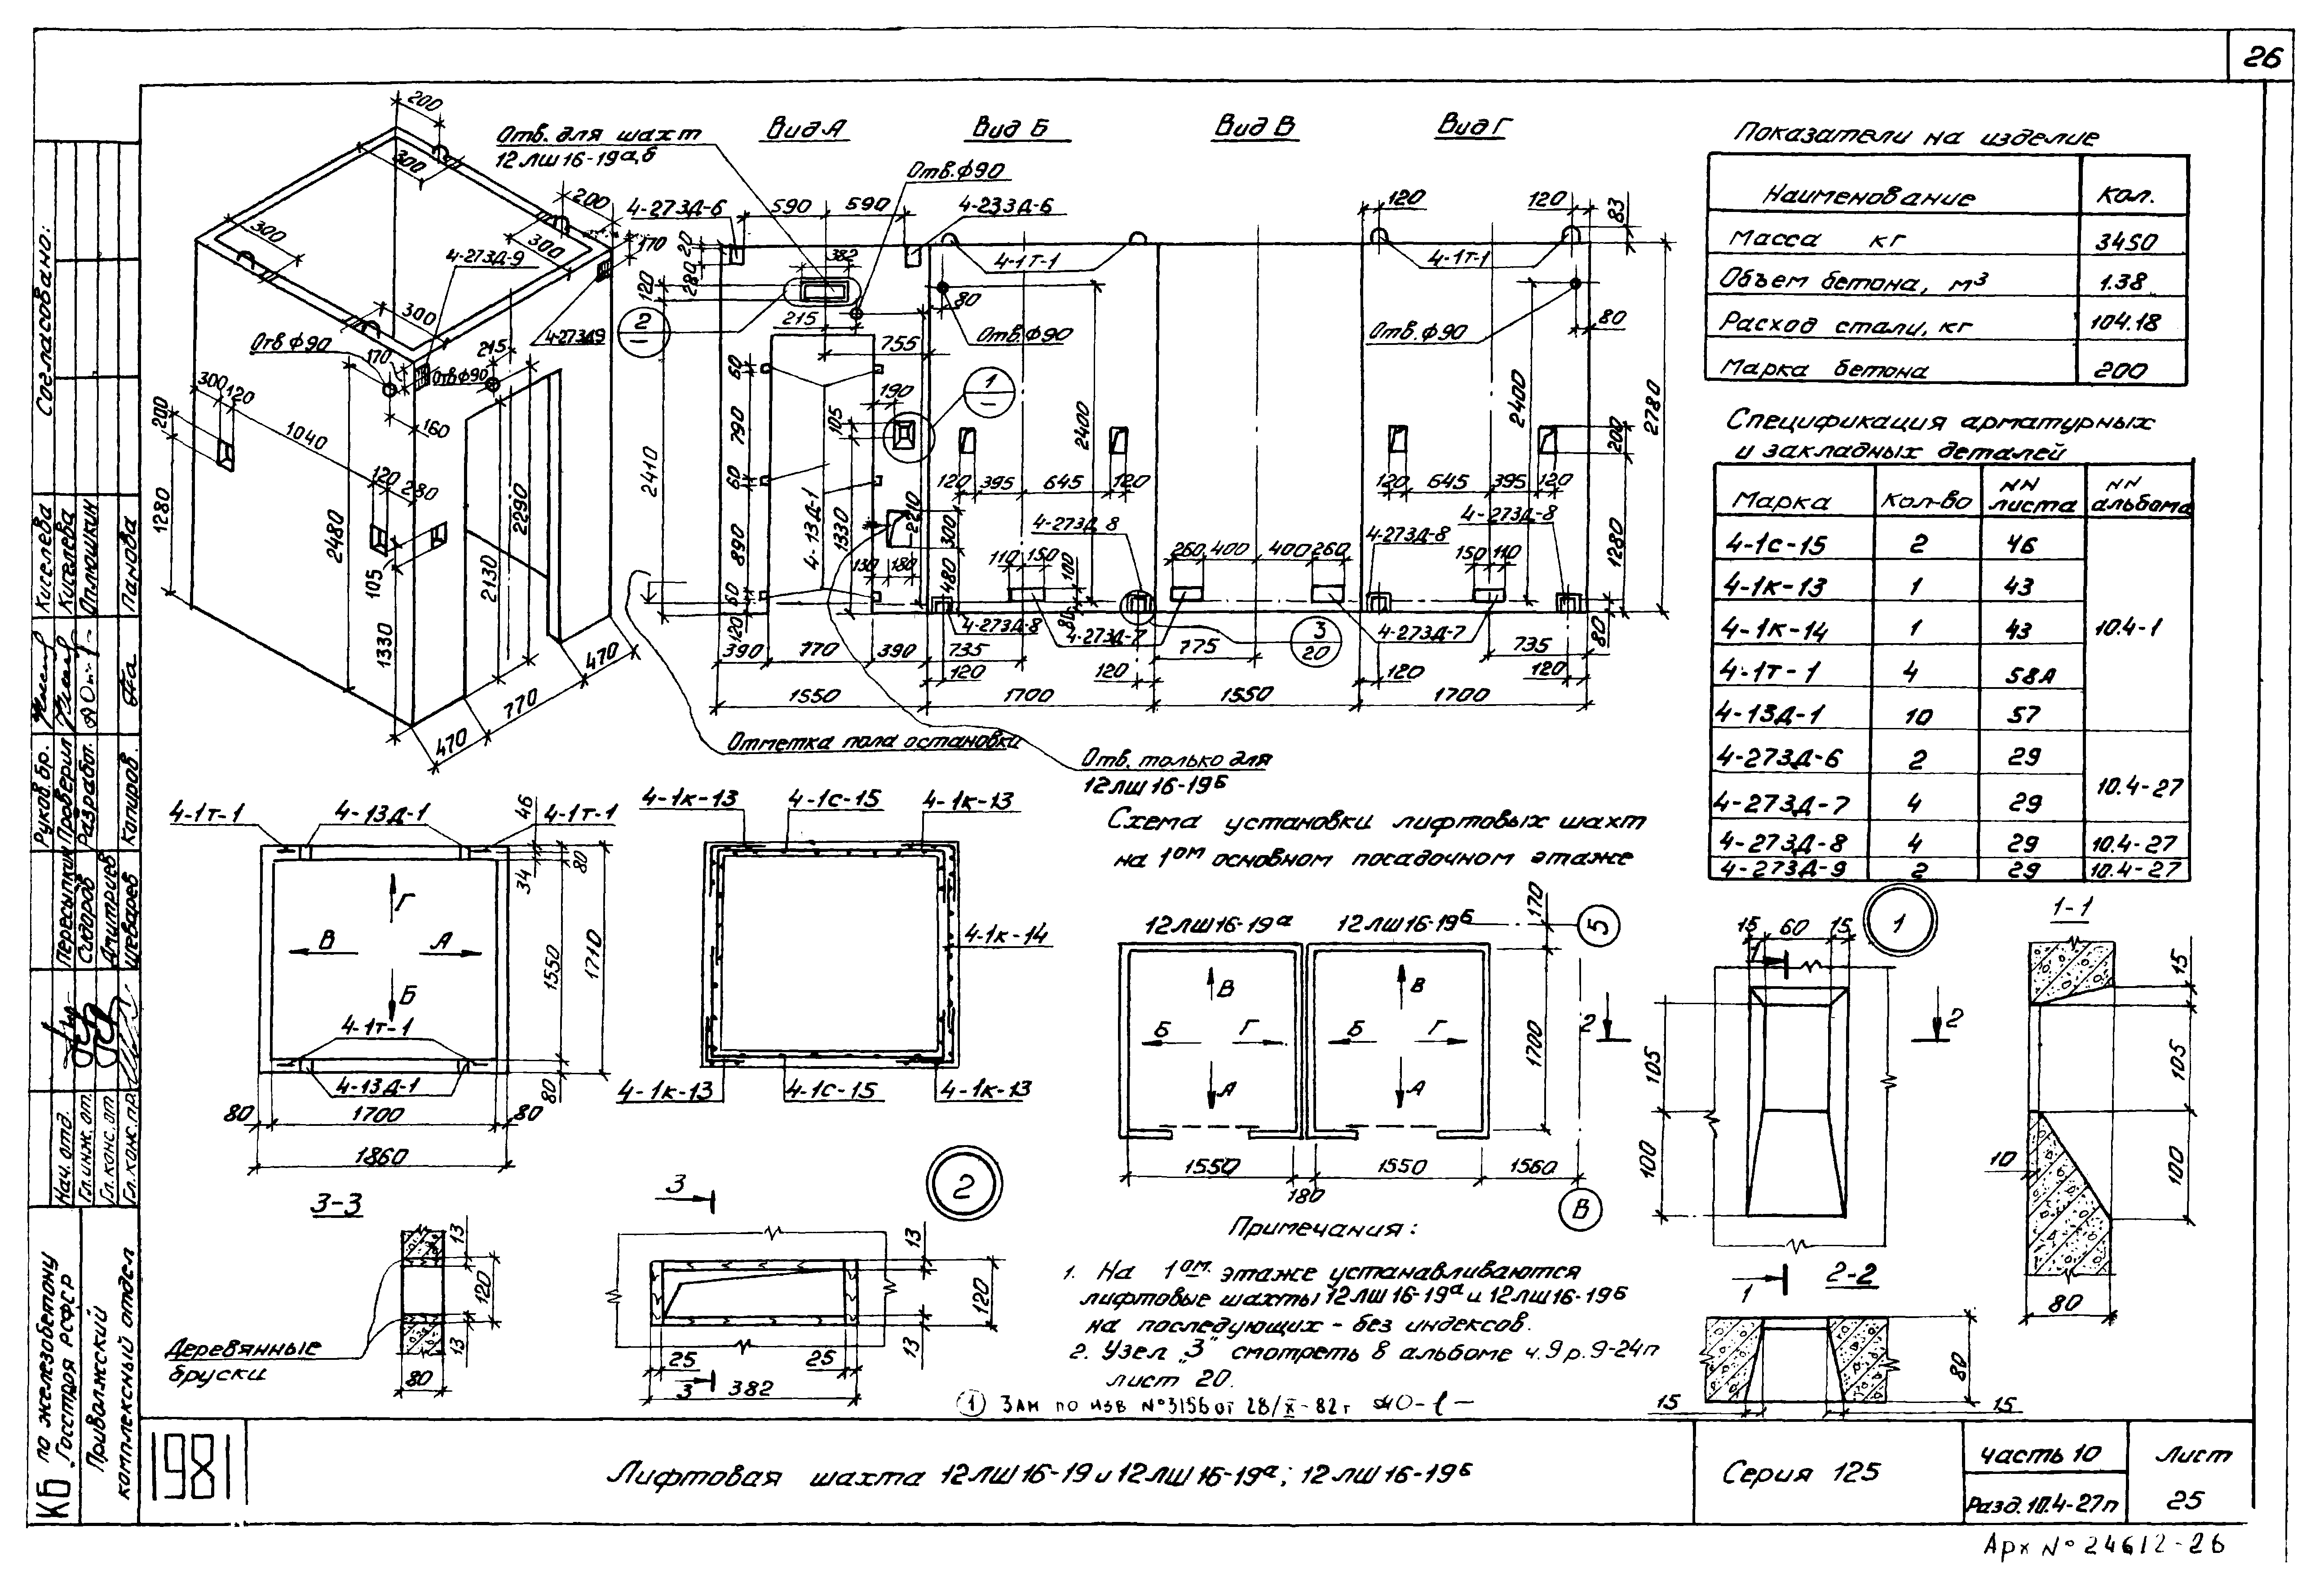 26
Согласовано:
Вид А
Вид Б
Вид В
Вид Г
Отв. для шахт
12ЛШ16-19а,б
Отв.ф90
4-273Д-6
590
590
4-233Д-6
120
120
83
200
300
200
300
300
170
4-273Д-9
4-273Д9
300
Отв ф90
170
Отв ф90
215
300
120
200
1040
160
120
280
1280
2480
105
1330
2130
2290
470
770
470
20
280
120
382
2
215
755
80
Отв.ф90
4-1т-1
4-1т-1
Отв.ф90
80
60
790
60
890
60
120
2410
4-13Д-1
105
190
1
1330
2210
130
180
300
480
2400
2400
200
2780
1280
120
395
645
120
120
645
395
120
4-273Д-8
4-273Д-8
4-273Д-8
110
150
100
80
260
400
400
260
150
110
4-273Д-8
4-273Д-7
4-273Д-7
3
20
80
390
770
390
735
120
120
775
120
735
120
1550
1700
1550
1700
Отметка пола остановки
Отв. только для
12ЛШ16-19б
Показатели на изделие
Наименование Кол.
Масса кг 3450
Объем бетона, м³ 1.38
Расход стали, кг 104.18
Марка бетона 200
Спецификация арматурных
и закладных деталей
Марка Кол-во NN листа NN альбома
4-1с-15 2 46
4-1к-13 1 43
4-1к-14 1 43 10.4-1
4-1т-1 4 58А
4-13Д-1 10 57
4-273Д-6 2 29
4-273Д-7 4 29 10.4-27
4-273Д-8 4 29 10.4-27
4-273Д-9 2 29 10.4-27
4-1т-1
4-13Д-1
4-1т-1
46
34
80
Г
В
А
Б
4-1т-1
4-13Д-1
1550
1710
80
80
1700
80
1860
4-1к-13
4-1с-15
4-1к-13
4-1к-14
4-1к-13
4-1с-15
4-1к-13
Схема установки лифтовых шахт
на 1ом основном посадочном этаже
12ЛШ16-19а
12ЛШ16-19б
170
5
В
Б
Г
А
В
Б
Г
А
1700
1550
1550
1560
180
В
1
15
60
15
1
2
2
105
100
1
1-1
15
105
100
10
80
2-2
80
15
15
3-3
13
120
13
80
Деревянные
бруски
2
3
13
120
13
25
25
3
382
Примечания:
1. На 1ом. этаже устанавливаются
лифтовые шахты 12ЛШ16-19а и 12ЛШ16-19б
на последующих - без индексов.
2. Узел „3" смотреть в альбоме ч.9 р.9-24п
лист 20.
1 Зам по изв №3156 от 28/X-82г
Руков. бр. Киселева
Проверил Киселева
Разработ. Оплюшкин
Копиров. Панова
Нач. отд. Пересыпкин
Гл.инж.от. Сидоров
Гл.конс.от Дмитриев
Гл.конс.пр. Шеварев
КБ по железобетону
Госстроя РСФСР
Приволжский
комплексный отдел
1981
Лифтовая шахта 12ЛШ16-19 и 12ЛШ16-19а; 12ЛШ16-19б
Серия 125
часть 10
Разд. 10.4-27п
Лист
25
Арх № 24612-26